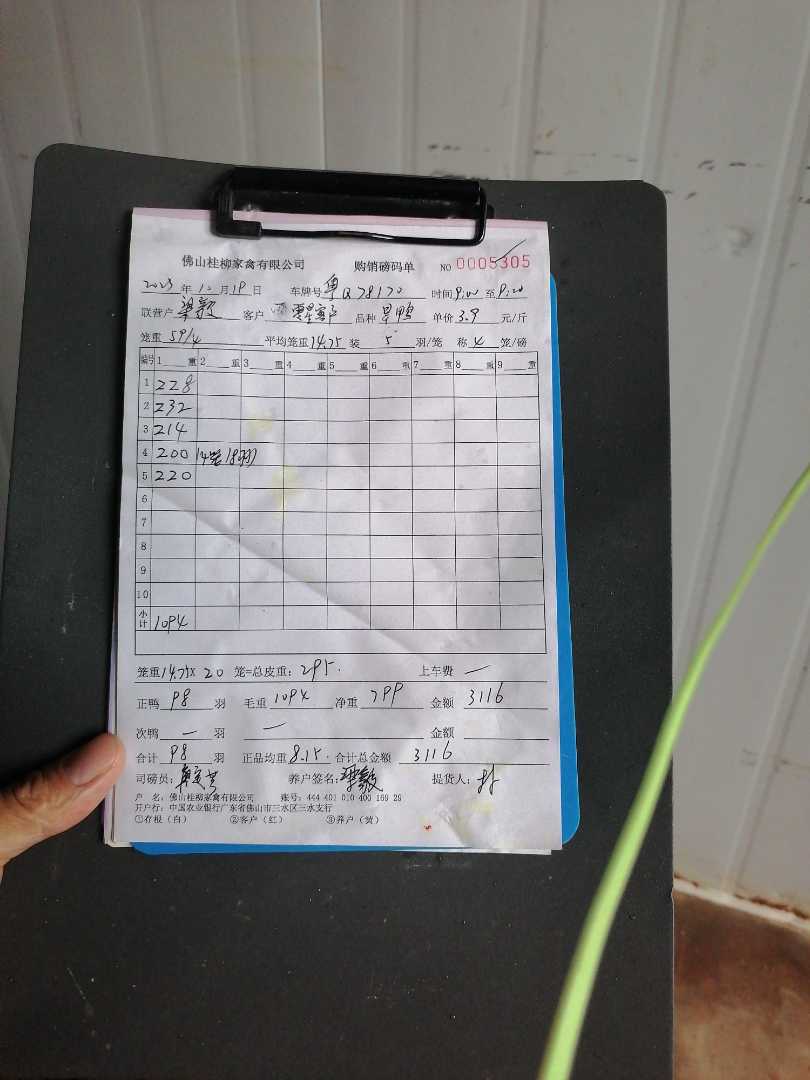 佛山桂柳家禽有限公司 购销磅码单 NO 0005305
2023年10月19日 车牌号 粤Q78170 时间 9:00 至 9:20
联营户 梁毅 客户 品种 旱鸭 单价 3.9 元/斤
笼重 59/4 平均笼重 14.75 装 5 羽/笼 称 4 笼/磅
编号 1 重 2 重 3 重 4 重 5 重 6 重 7 重 8 重 9 重
1 228
2 232
3 214
4 200 (4笼18羽)
5 220
6
7
8
9
10
小计 1094
笼重 14.75 × 20 笼=总皮重: 295. 上车费 —
正鸭 98 羽 毛重 1094 净重 799 金额 3116
次鸭 — 羽 — 金额
合计 98 羽 正品均重 8.15. 合计总金额 3116
司磅员: 养户签名: 梁毅 提货人:
户 名: 佛山桂柳家禽有限公司 账号: 444 401 010 400 169 29
开户行: 中国农业银行广东省佛山市三水区三水支行
①存根（白） ②客户（红） ③养户（黄）